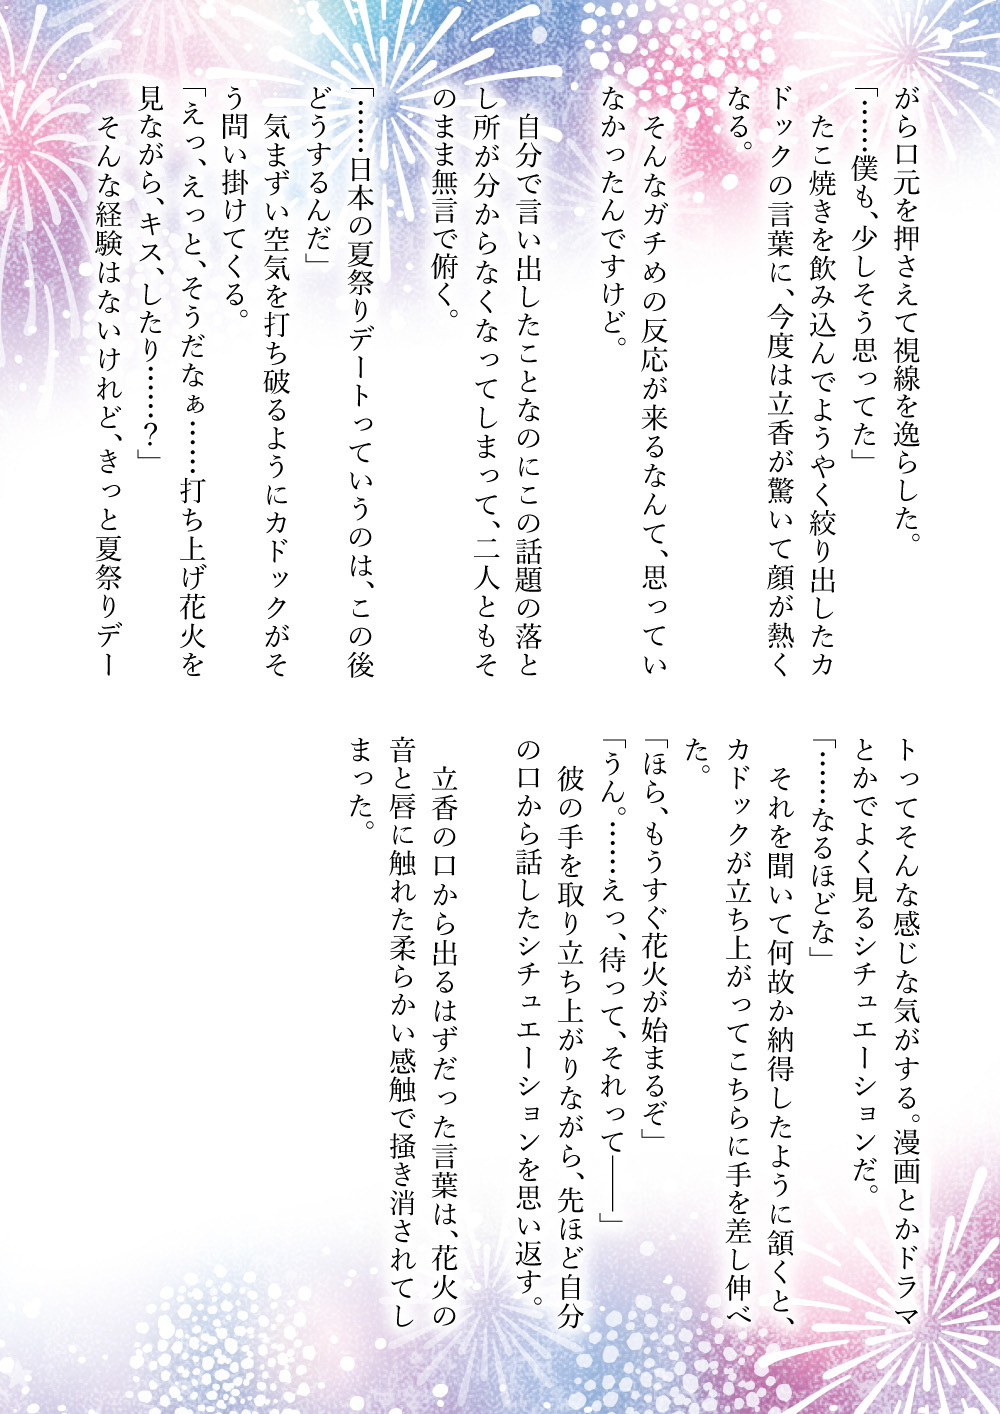 がら口元を押さえて視線を逸らした。
「……僕も、少しそう思ってた」
たこ焼きを飲み込んでようやく絞り出したカ
ドックの言葉に、今度は立香が驚いて顔が熱く
なる。
そんなガチめの反応が来るなんて、思ってい
なかったんですけど。
自分で言い出したことなのにこの話題の落と
し所が分からなくなってしまって、二人ともそ
のまま無言で俯く。
「……日本の夏祭りデートっていうのは、この後
どうするんだ」
気まずい空気を打ち破るようにカドックがそ
う問い掛けてくる。
「えっ、えっと、そうだなぁ……打ち上げ花火を
見ながら、キス、したり……？」
そんな経験はないけれど、きっと夏祭りデー
トってそんな感じな気がする。漫画とかドラマ
とかでよく見るシチュエーションだ。
「……なるほどな」
それを聞いて何故か納得したように頷くと、
カドックが立ち上がってこちらに手を差し伸べ
た。
「ほら、もうすぐ花火が始まるぞ」
「うん。……えっ、待って、それって――」
彼の手を取り立ち上がりながら、先ほど自分
の口から話したシチュエーションを思い返す。
立香の口から出るはずだった言葉は、花火の
音と唇に触れた柔らかい感触で掻き消されてし
まった。